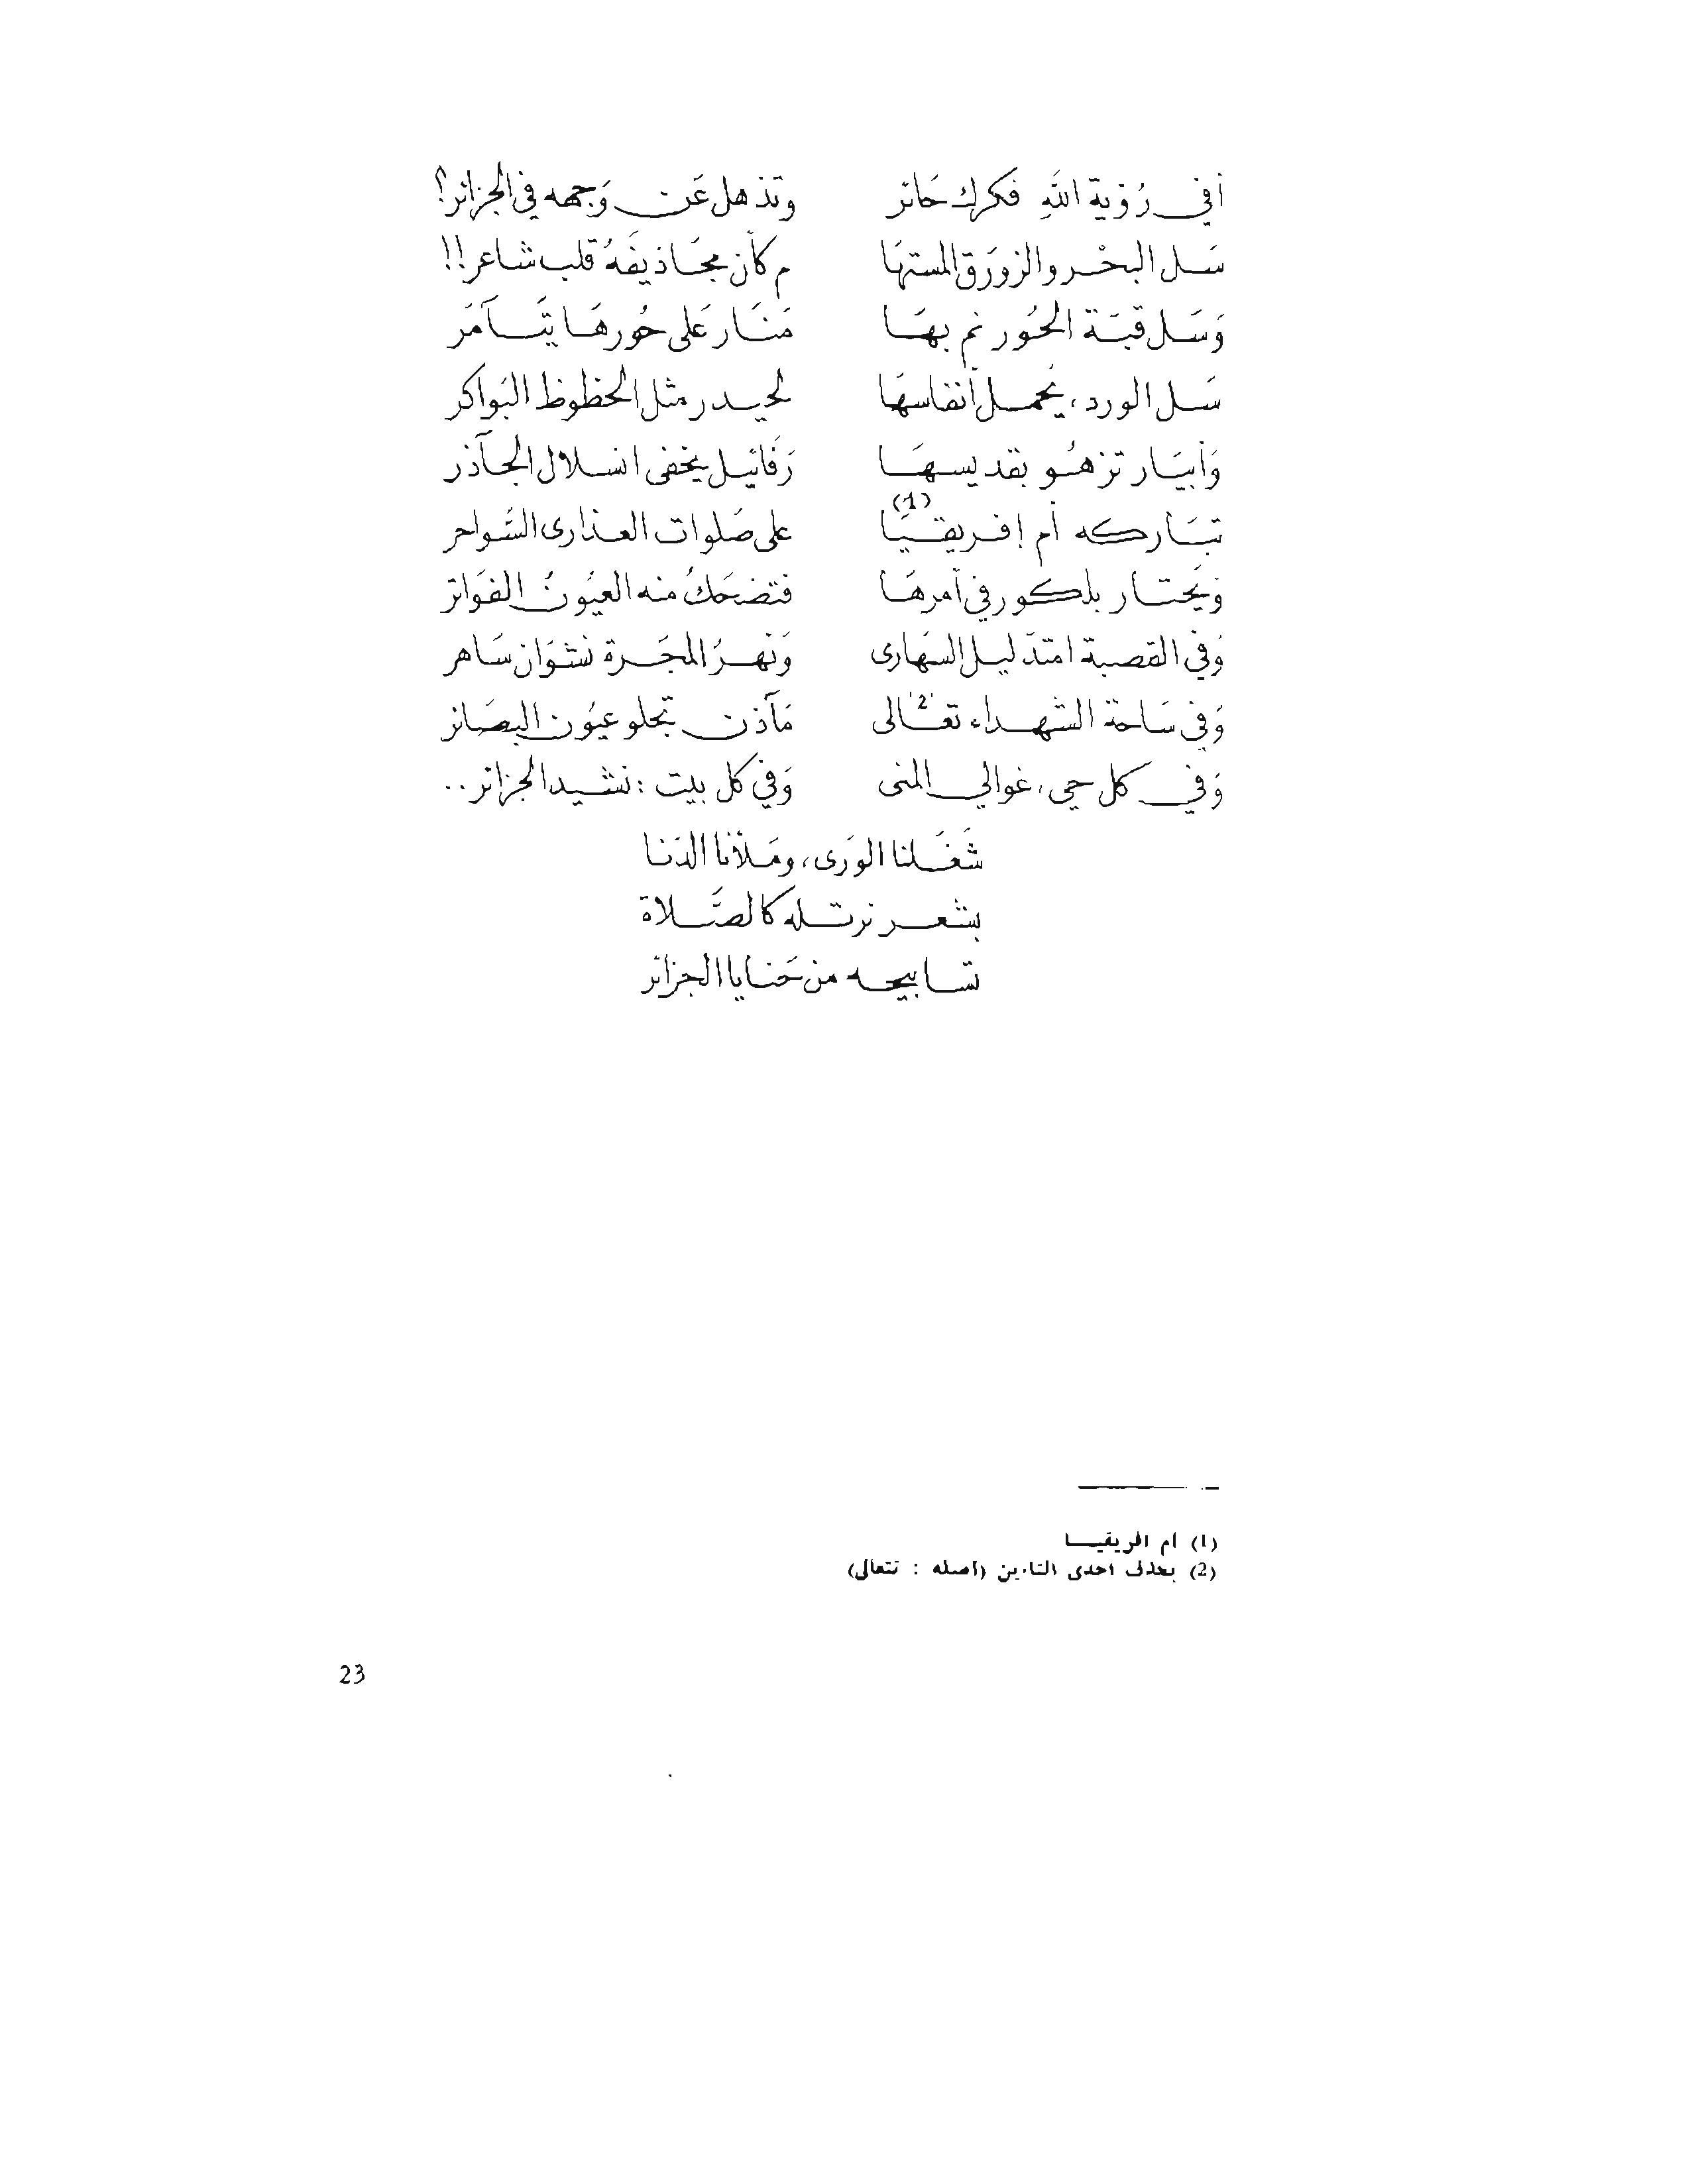 أفي رُؤية اللهِ فكرك حَائر وتذهل عَن وَجهه في الجزائر؟
سَل البحْر والزورَق المستهَا م كأن مجَاذيفَهُ قلب شاعر!!
وَسَل قبَة الحُور نم بهَا مَنَار عَلى حُورهَا يتَآمَر
سَل الورد، يُحمل أنفاسهَا لحيدر مثل الحظوظ البَواكر
وَأبيَار تزهُو بقديسهَا رَفائيل يخفى انسلال الجآذر
تبَاركه أم إفريقيَا (1) على صَلوات العذارى السَّواحر
وَيَحتار بلكور في أمرهَا فتضحَكُ منه العيُونُ الفوَاتر
وَفي القصبة امتدَ ليل السهَارى وَنهرُ المجَرة نشوَان سَاهر
وَفي سَاحة الشهداء تعَالى (2) مَآذن تجلو عيُون البصَائر
وَفي كل حي، غوالي المنى وَفي كل بيت : نشيد الجزائر..
شَغَلنا الورَى، ومَلأنا الدَنا
بشعر نرتله كالصَّلاة
تسابيحه من حَنايا الجزائر
(1) ام افريقيا
(2) بحذف احدى التاءين (اصله : تتعالى)
23